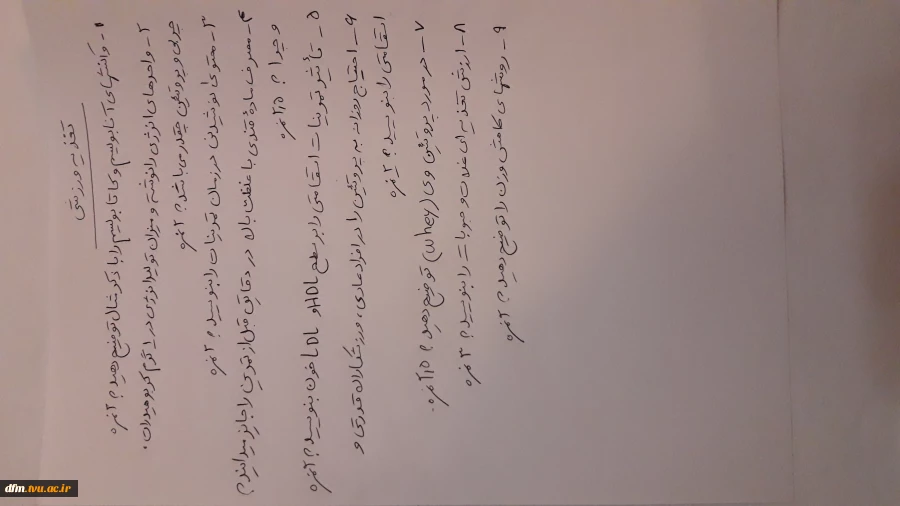 تغذیه ورزشی
۱- واکنشهای آنابولیسم و کاتابولیسم را با ذکر مثال توضیح دهید؟ ۲ نمره
۲- واحدهای انرژی را نوشته و میزان تولید انرژی در ۱ گرم کربوهیدرات،
چربی و پروتئین چقدر می باشد؟ ۲ نمره
۳- محتوای نوشیدنی در زمان تمرینات را بنویسید؟ ۲ نمره
۴- مصرف ماده قندی با غلظت بالا در دقایق قبل از تمرین را جایز میدانید؟
و چرا؟ ۱/۵ نمره
۵- تأثیر تمرینات استقامتی را بر سطح HDL و LDL خون بنویسید؟ ۲ نمره
۶- احتیاج روزانه به پروتئین را در افراد عادی، ورزشکاران قدرتی و
استقامتی را بنویسید؟ ۲ نمره
۷- در مورد پروتئین وی (whey) توضیح دهید؟ ۱/۵ نمره.
۸- ارزش تغذیه ای غلات و حبوبات را بنویسید؟ ۳ نمره
۹- روشهای کاهش وزن را توضیح دهید؟ ۲ نمره
dfm.tvu.ac.ir